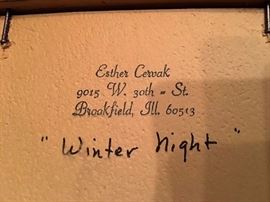 Esther Cervak
9015 W. 30th - St.
Brookfield, Ill. 60513
"Winter Night"